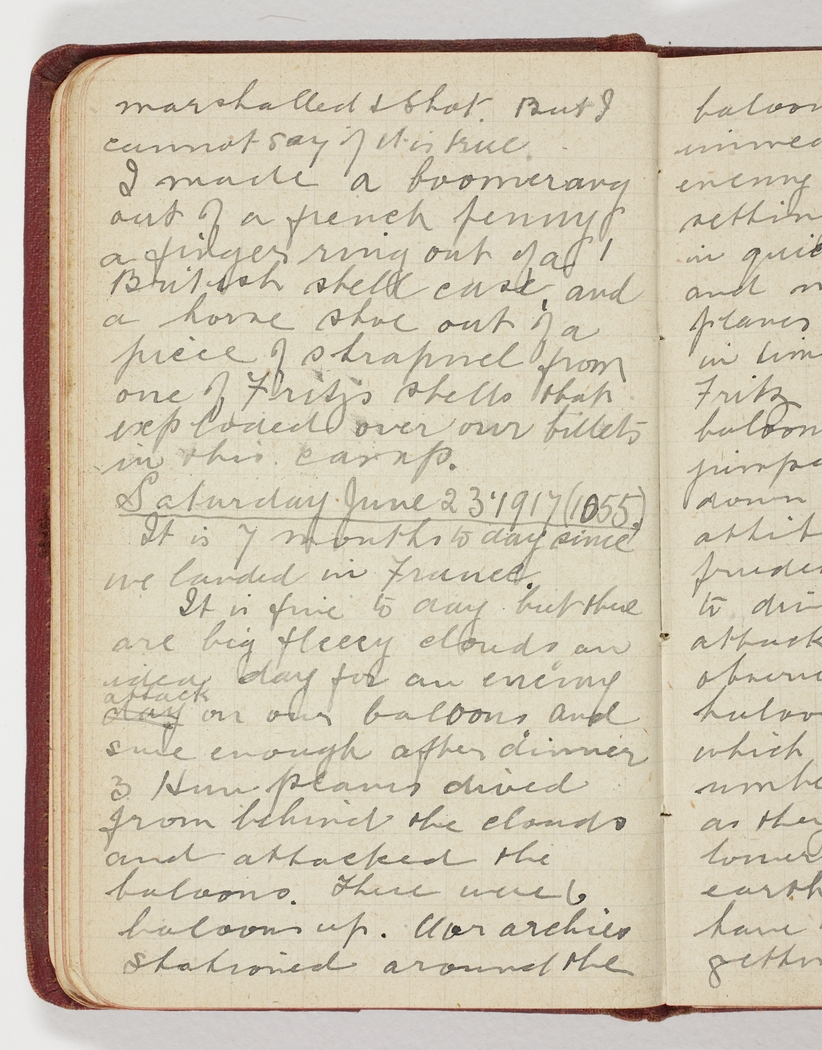 marshalled & shot. But I
cannot say if it is true
I made a boomerang
out of a french penny &
a finger ring out of a
British shell case, and
a horse shoe out of a
piece of shrapnel from
one of Fritz's shells that
exploded over our billets
in this camp.
Saturday June 23 1917 (1055)
It is 7 months to day since
we landed in France.
It is fine to day but there
are big fleecy clouds an
ideal day for an enemy
attack
day on our baloons and
sure enough after dinner
3 Hun planes dived
from behind the clouds
and attacked the
baloons. There were 6
baloons up. Our archies
stationed around the
baloon
immed
enemy
settin
in quic
and m
planes
in tim
Fritz
baloon
jumpe
down
attit
to div
attack
observ
baloo
which
numbe
as they
lower
earth
have
gettin